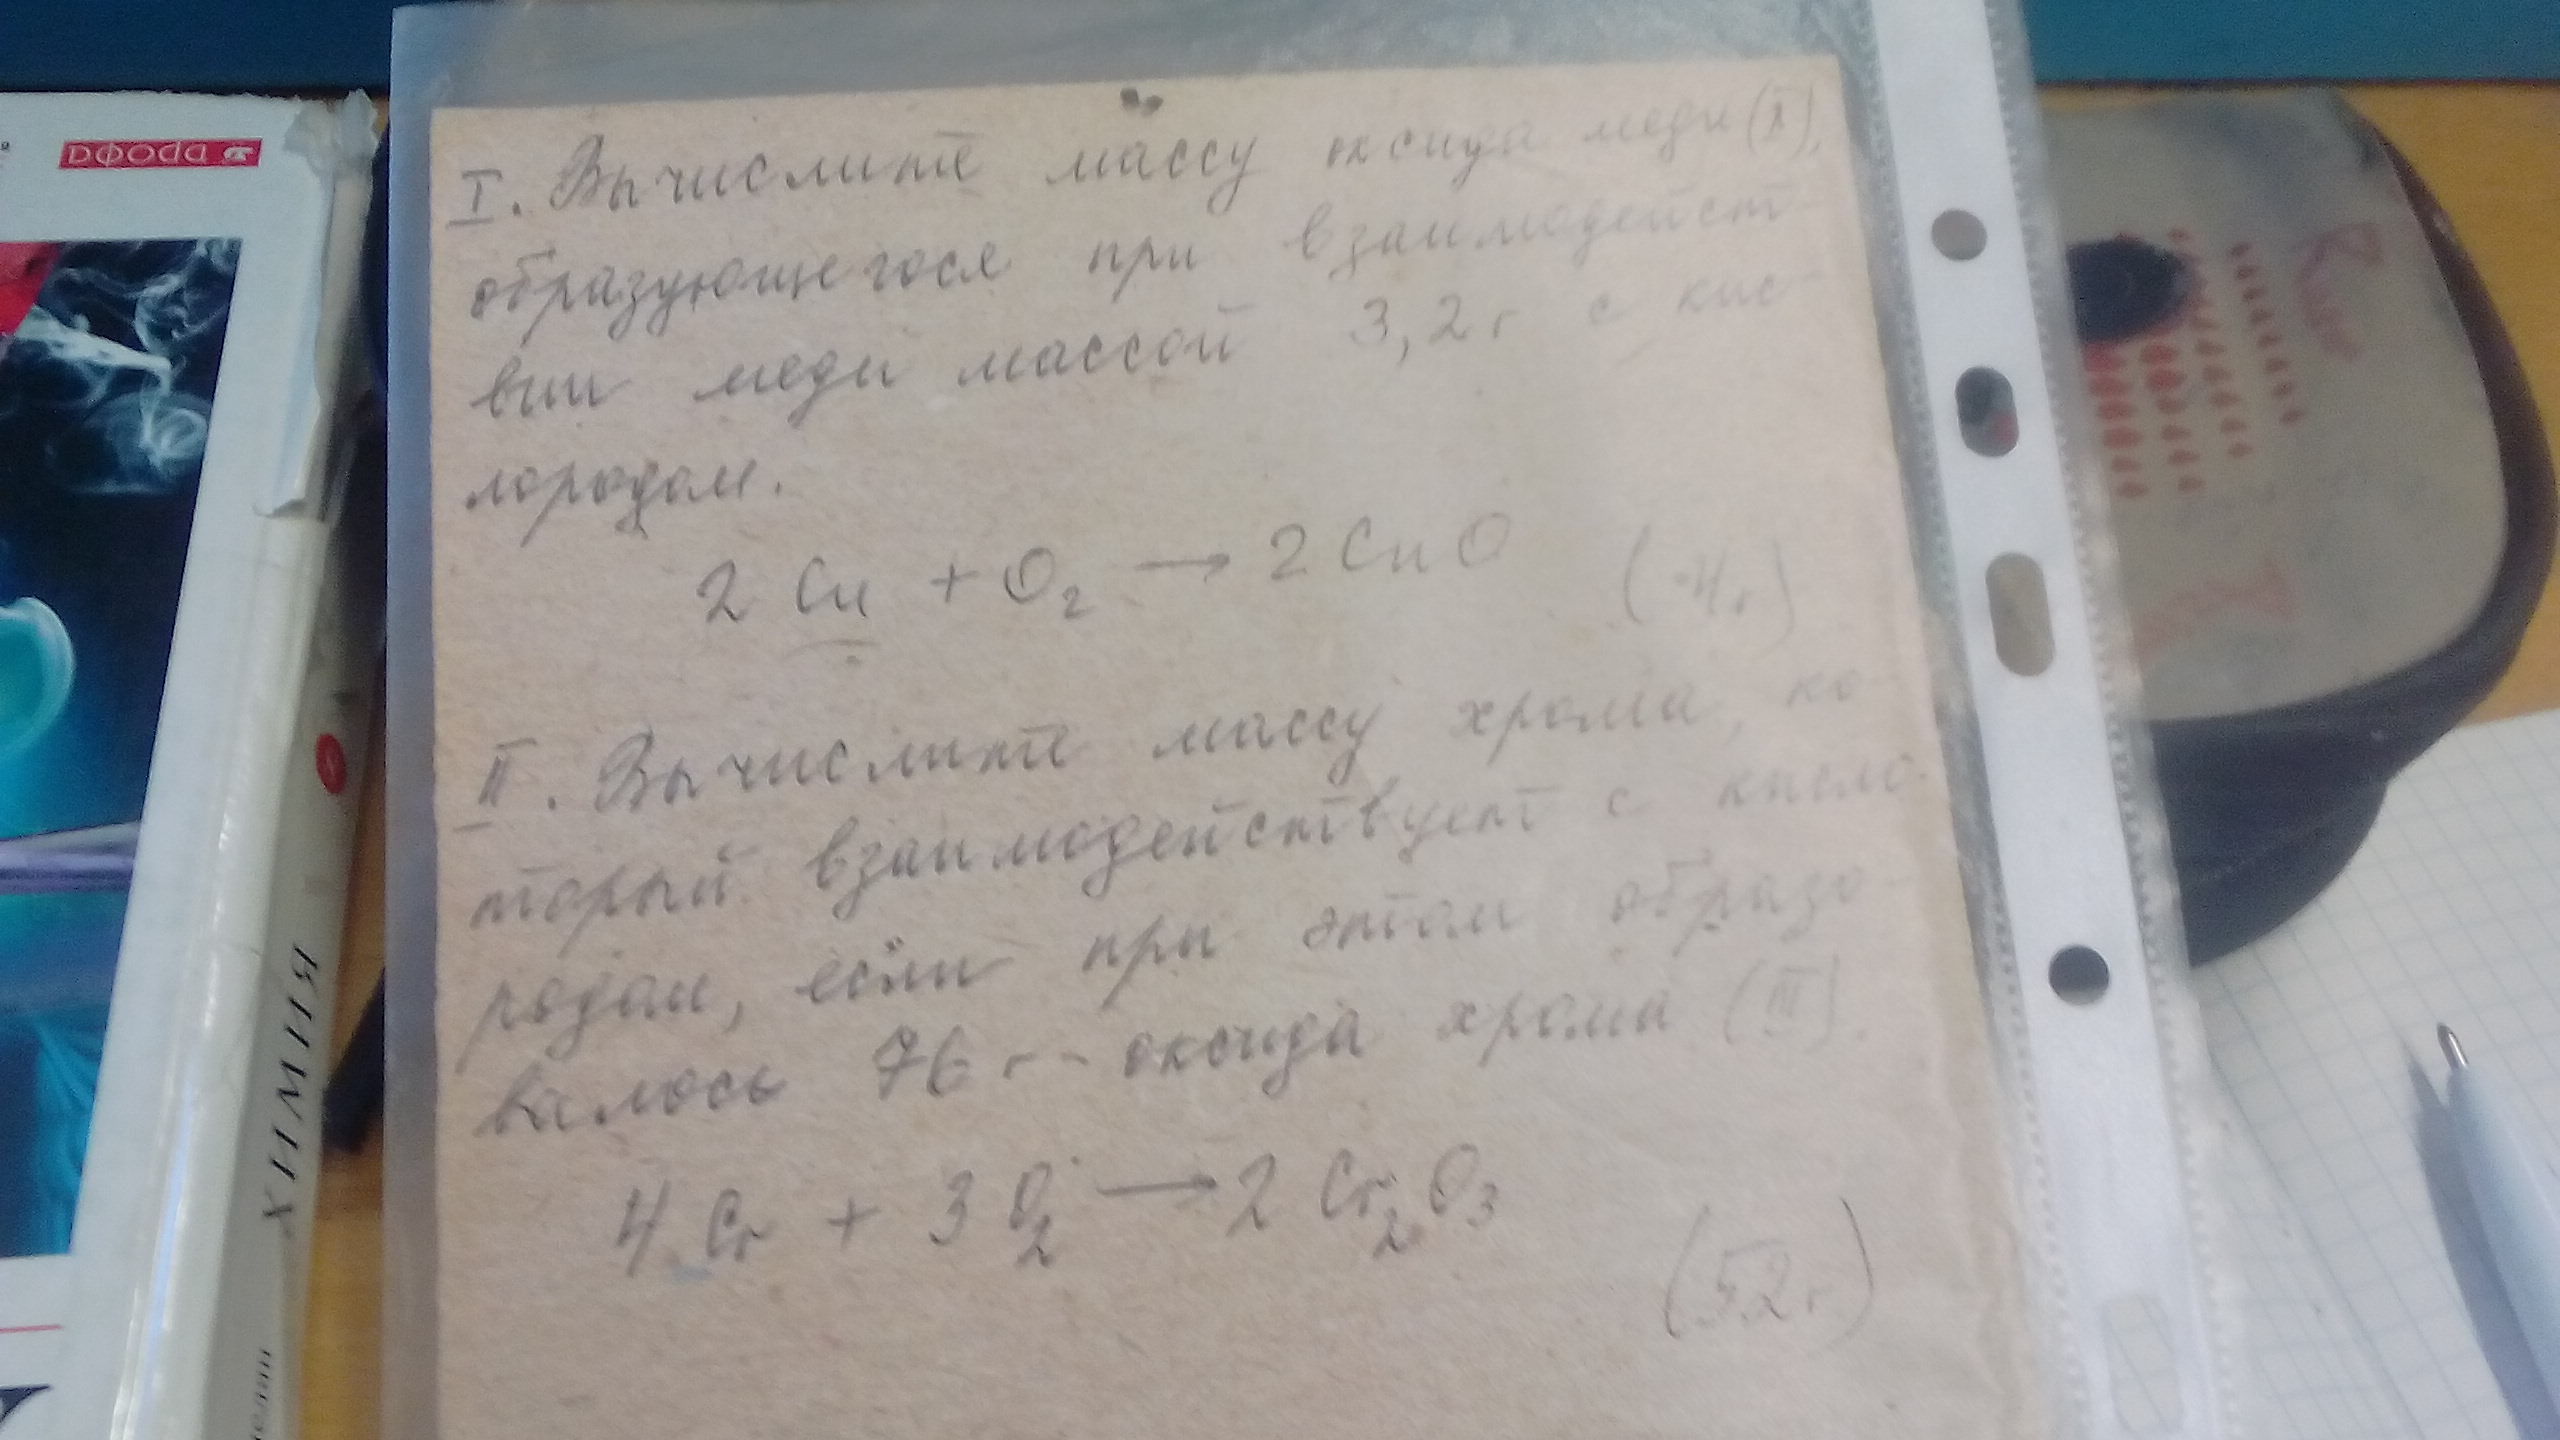 дрофа
ХИМИЯ
I. Вычислите массу оксида меди (II),
образующегося при взаимодейст-
вии меди массой 3,2 г с кис-
лородом.
2 Cu + O₂ → 2 CuO (4 г)
II. Вычислите массу хрома, ко-
торый взаимодействует с кисло-
родом, если при этом образо-
валось 76 г оксида хрома (III).
4 Cr + 3 O₂ → 2 Cr₂O₃
(52 г)